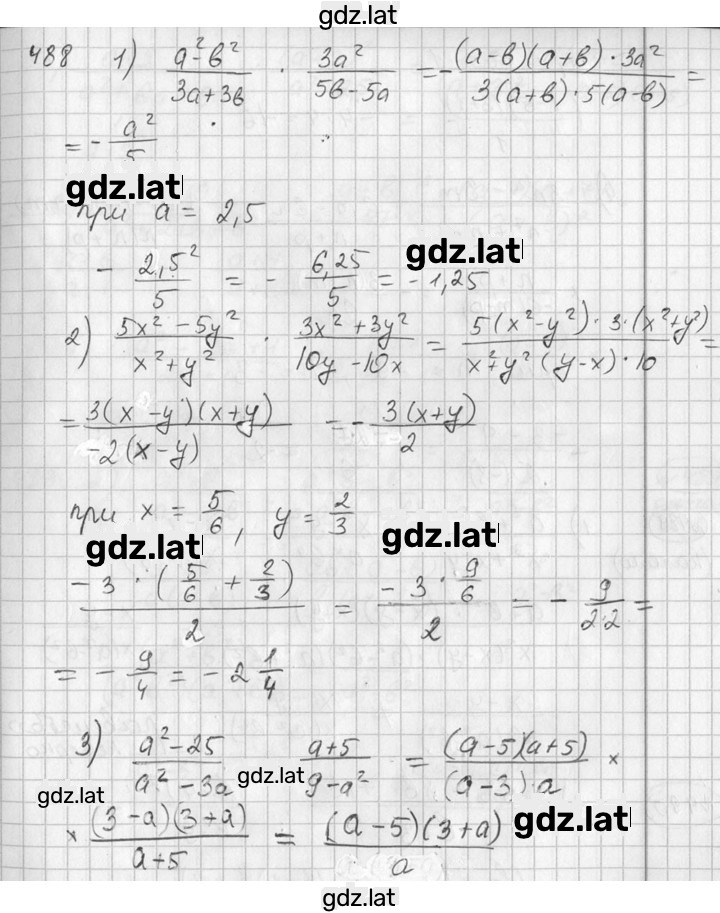 gdz.lat
488 1) (a²-b²)/(3a+3b) · 3a²/(5b-5a) = -((a-b)(a+b)·3a²)/(3(a+b)·5(a-b)) =
= - a²/5
gdz.lat
при a = 2,5
gdz.lat
- 2,5²/5 = - 6,25/5 = -1,25
2) (5x² - 5y²)/(x²+y²) · (3x² + 3y²)/(10y - 10x) = (5(x²-y²)·3·(x²+y²))/(x²+y² (y-x)·10) =
= (3(x-y)(x+y))/(-2(x-y)) = - 3(x+y)/2
при x = 5/6, y = 2/3
gdz.lat gdz.lat
(-3·(5/6 + 2/3))/2 = (-3·9/6)/2 = - 9/(2·2) =
= - 9/4 = -2 1/4
3) (a²-25)/(a²-3a) (a+5)/(9-a²) = ((a-5)(a+5))/((a-3)·a) ×
gdz.lat gdz.lat
× ((3-a)(3+a))/(a+5) = ((a-5)(3+a))/a
gdz.lat
gdz.lat